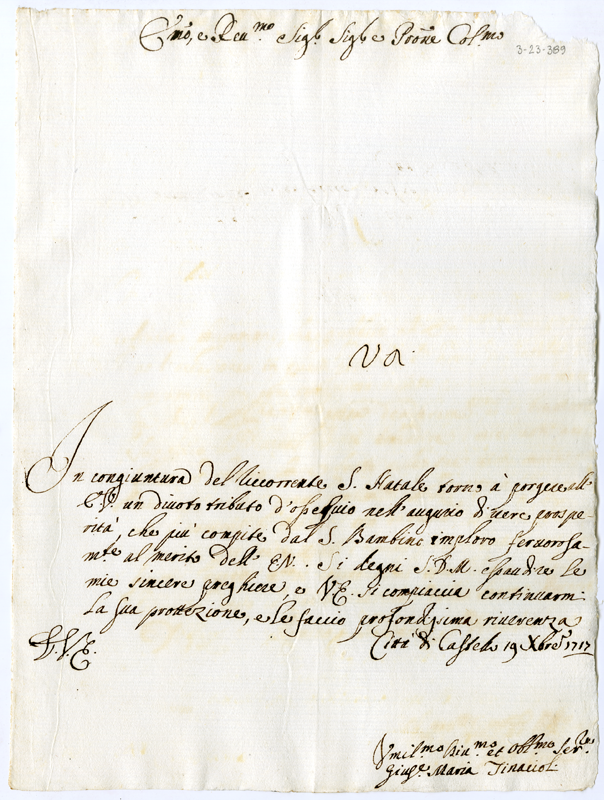 Emo, e Reumo Sigr. Sigr e Prone Colmo
3-23-369
In congiuntura del ricorrente S. Natale torno à porgere all'
E.V. un divoto tributo d'ossequio nell'augurio di vere prospe-
rità, che più compite dal S. Bambino imploro fervorosa-
mte al merito dell' E.V. Si degni S.D.M. esaudire le
mie sincere preghiere, e V.E. si compiaccia continuarmi
la sua protezzione, e le faccio profondissima riverenza
D.V.E. Città di Castello 19 Xbre 1717
Umilmo Divmo et Obblmo Serre
Giuse. Maria